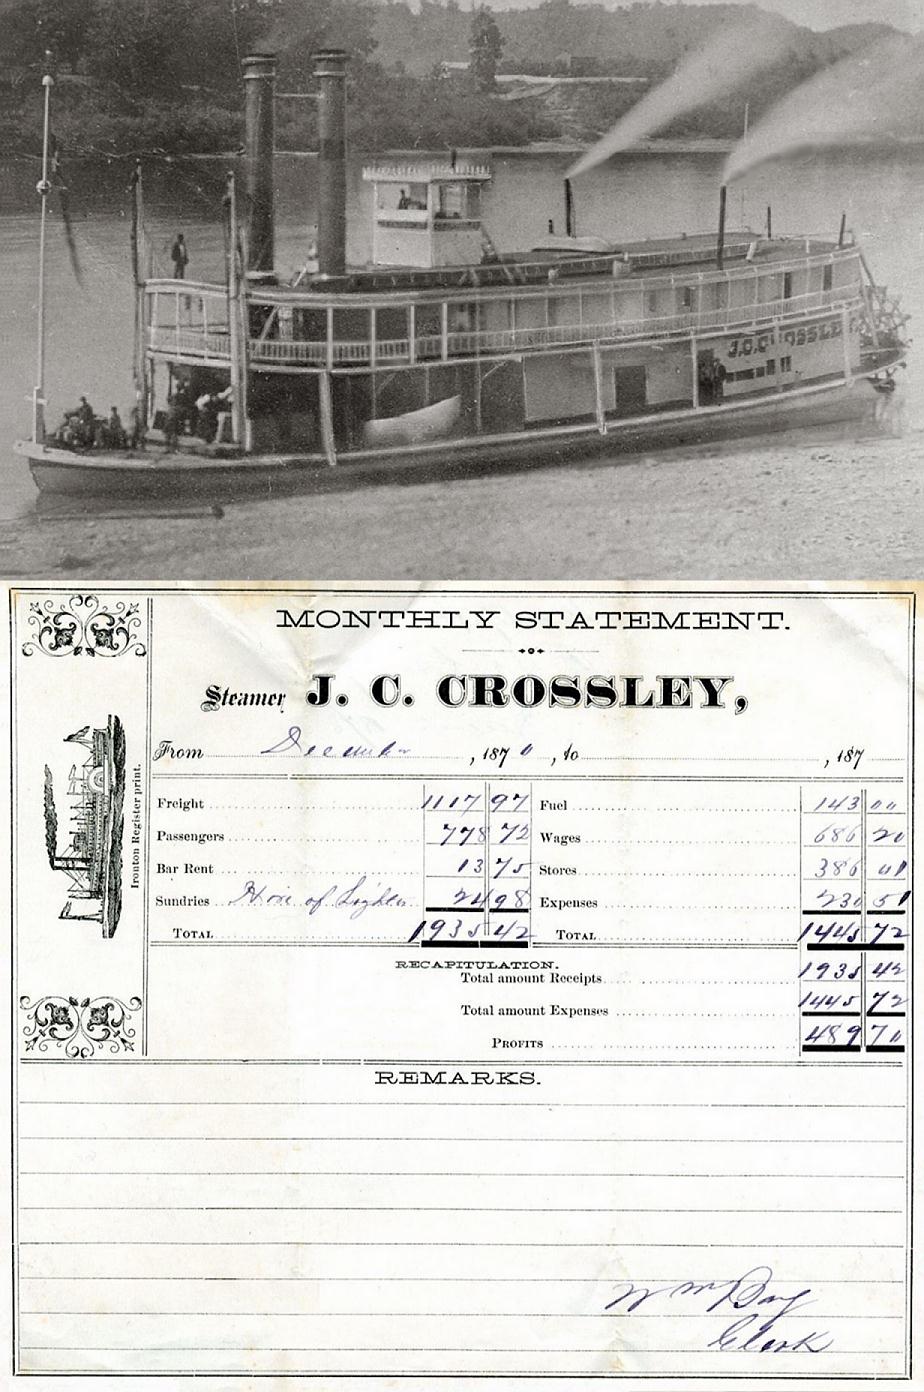 J.C. CROSSLEY
MONTHLY STATEMENT.
Steamer J. C. CROSSLEY,
From December, 1870, to , 187
Freight 1117 97 Fuel 143 00
Passengers 778 72 Wages 686 20
Bar Rent 13 75 Stores 386 01
Sundries Hire of Lighter 24 98 Expenses 230 51
TOTAL 1935 42 TOTAL 1445 72
RECAPITULATION.
Total amount Receipts 1935 42
Total amount Expenses 1445 72
PROFITS 489 70
Ironton Register print.
REMARKS.
W m Bay
Clerk